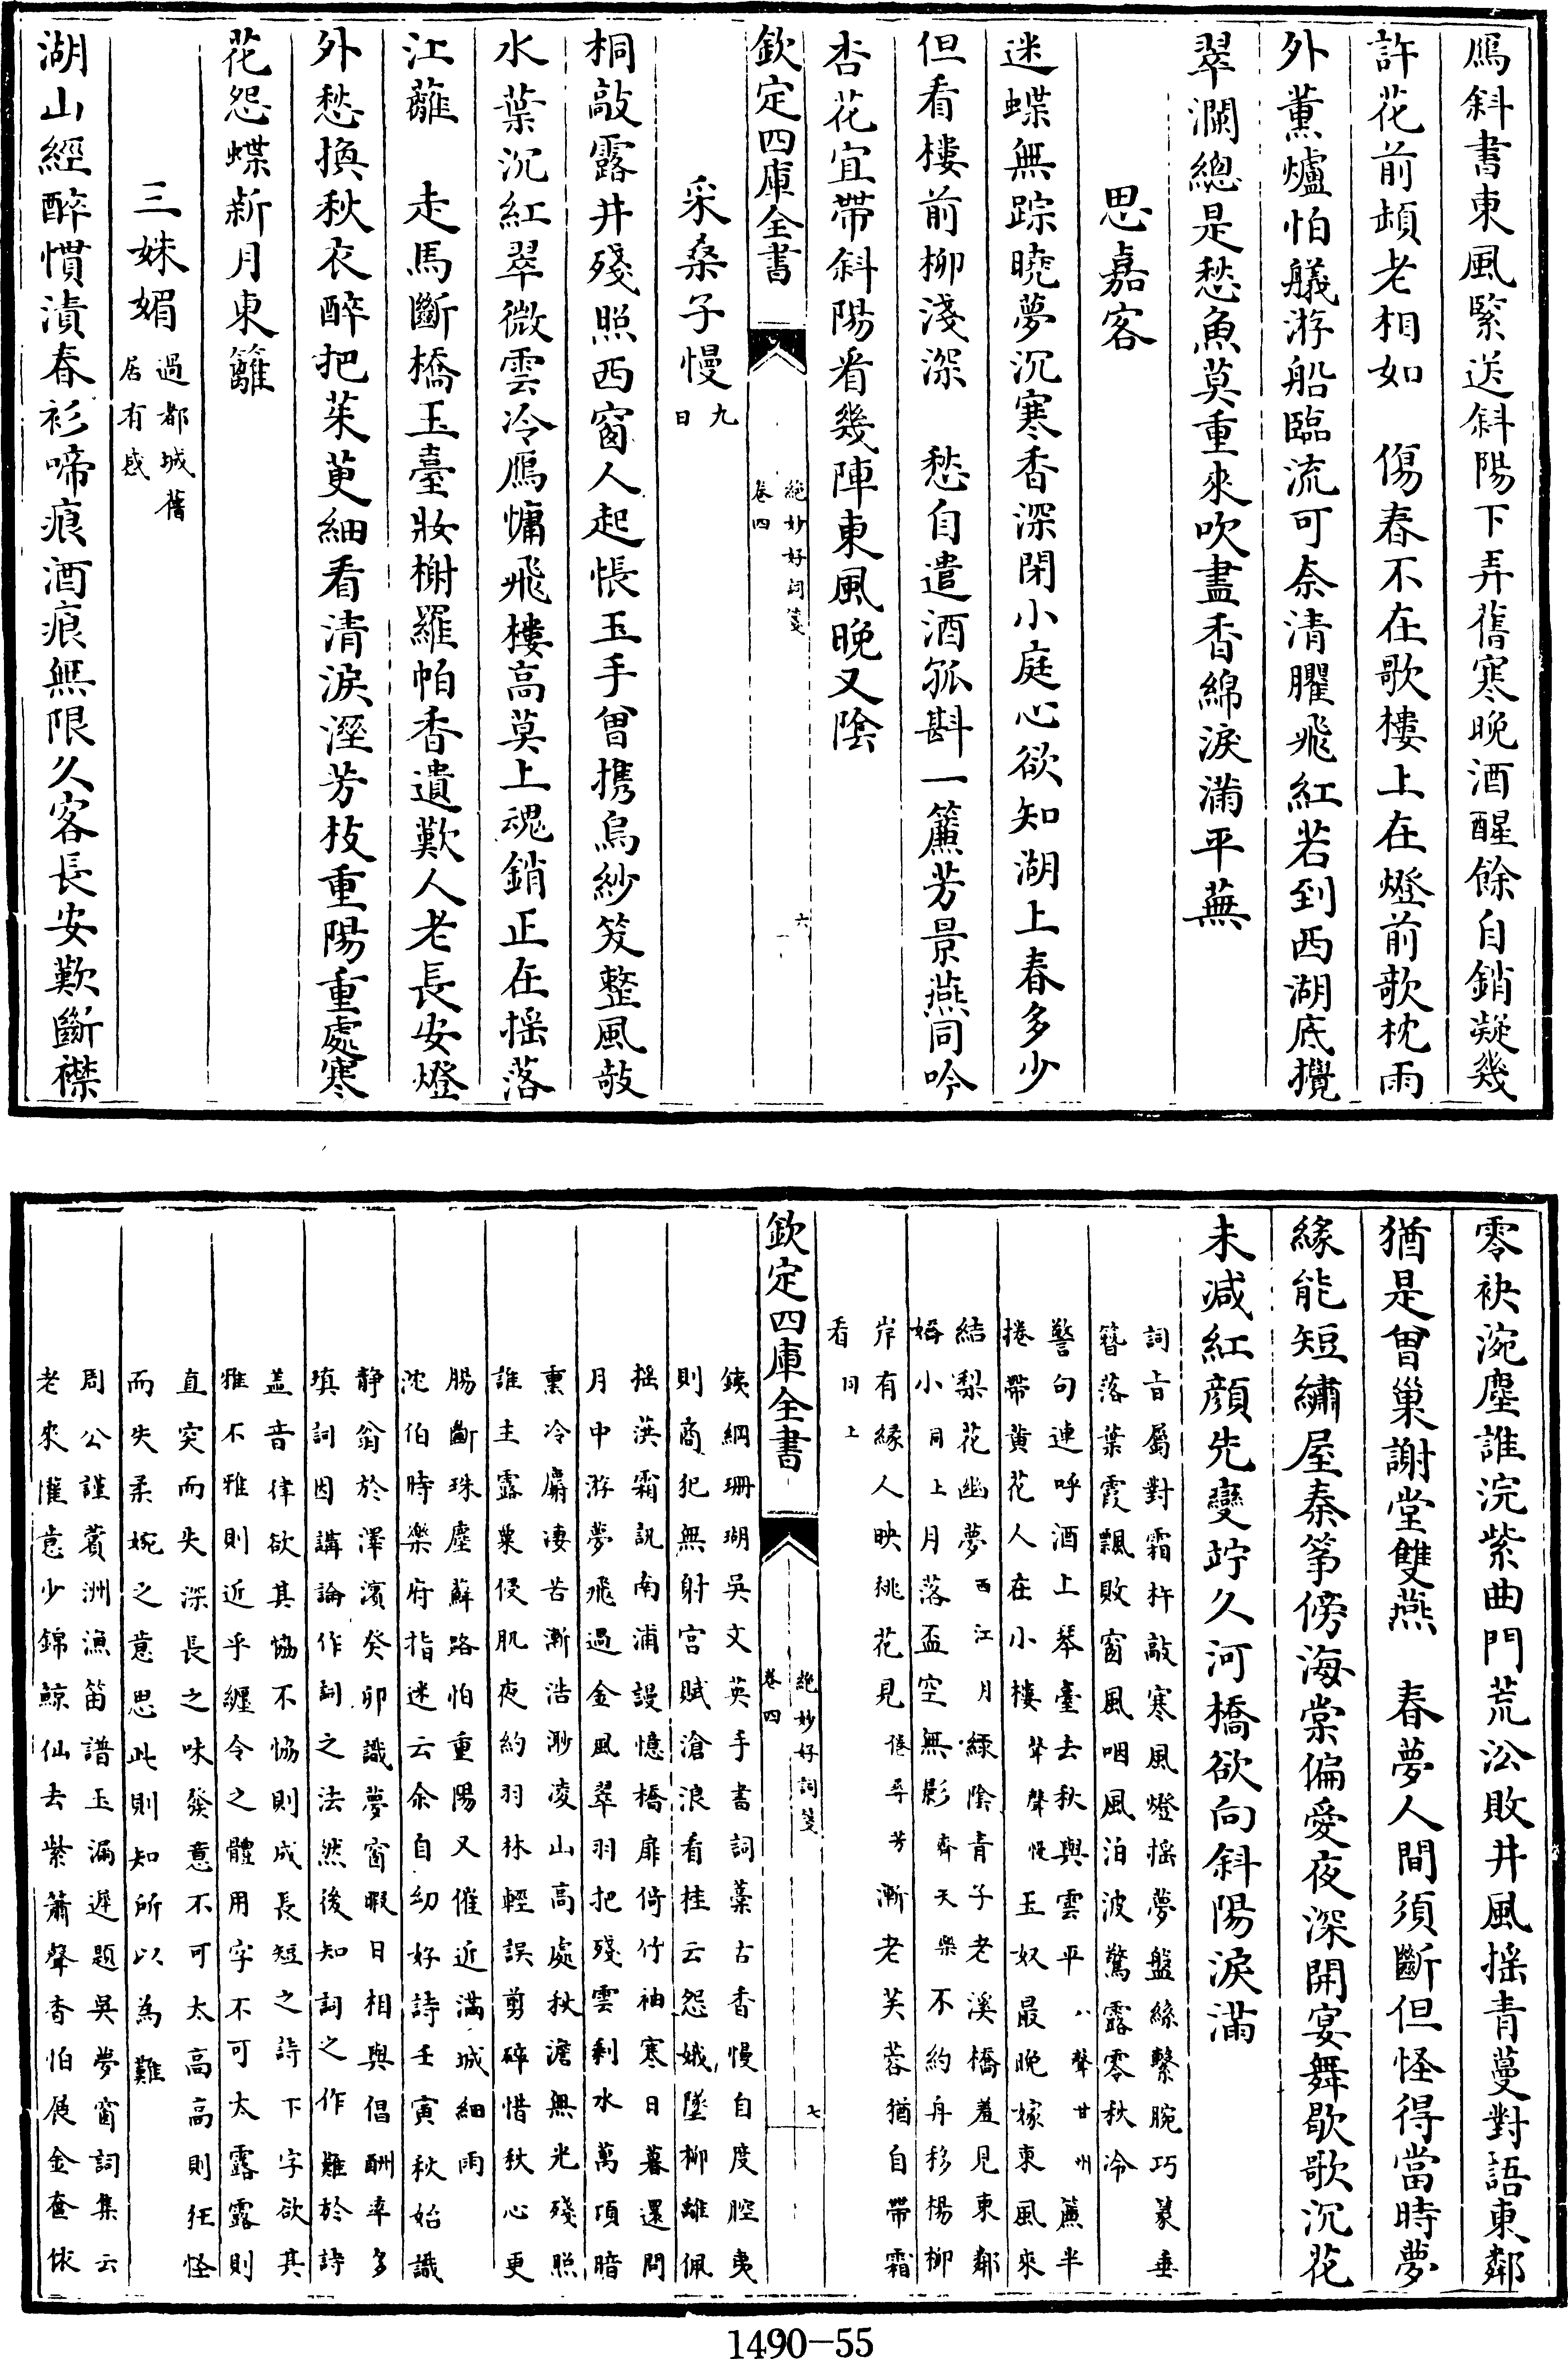 鴈斜書東風緊送斜陽下弄舊寒晚酒醒餘自銷凝幾
許花前頓老相如　傷春不在歌樓上在燈前欹枕雨
外薰爐怕艤游船臨流可奈清臞飛紅若到西湖底攪
翠瀾總是愁魚莫重來吹盡香綿淚滿平蕪
思嘉客
迷蝶無踪曉夢沉寒香深閉小庭心欲知湖上春多少
但看樓前柳淺深　愁自遣酒孤斟一簾芳景燕同吟
杏花宜帶斜陽看幾陣東風晚又陰
欽定四庫全書
絶妙好詞箋
卷四
六
采桑子慢九
日
桐敲露井殘照西窗人起悵玉手曾携烏紗笑整風攲
水葉沉紅翠微雲冷鴈慵飛樓高莫上魂銷正在揺落
江蘺　走馬斷橋玉臺妝榭羅帕香遺歎人老長安燈
外愁換秋衣醉把茱萸細看清淚溼芳枝重陽重處寒
花怨蝶新月東籬
三姝媚過都城舊
居有感
湖山經醉慣漬春衫啼痕酒痕無限久客長安歎斷襟
零袂涴塵誰浣紫曲門荒沿敗井風揺青蔓對語東鄰
猶是曾巢謝堂雙燕　春夢人間須斷但怪得當時夢
緣能短繡屋秦箏傍海棠偏愛夜深開宴舞歇歌沉花
未減紅顔先變竚久河橋欲向斜陽淚滿
詞旨屬對霜杵敲寒風燈揺夢盤絲繫腕巧篆垂
簪落葉霞飄敗窗風咽風泊波驚露零秋冷
警句連呼酒上琴臺去秋與雲平八聲甘州簾半
捲帶黄花人在小樓聲聲慢玉奴最晚嫁東風來
結梨花幽夢西江月緑陰青子老溪橋羞見東鄰
嬌小同上月落盃空無影齊天樂不約舟移楊柳
岸有縁人映桃花見倦尋芳漸老芙蓉猶自帶霜
看同上
欽定四庫全書
絶妙好詞箋
卷四
七
鐵綱珊瑚吳文英手書詞藁古香慢自度腔夷
則商犯無射宫賦滄浪看桂云怨娥墜柳離佩
揺葓霜訊南浦謾憶橋扉倚竹袖寒日暮還問
月中游夢飛過金風翠羽把殘雲剩水萬頃暗
熏冷麝凄苦漸浩渺凌山高處秋澹無光殘照
誰主露粟侵肌夜約羽林輕誤剪碎惜秋心更
腸斷珠塵蘚路怕重陽又催近滿城細雨
沈伯時樂府指迷云余自幼好詩壬寅秋始識
靜翁於澤濱癸卯識夢窗暇日相與倡酬率多
填詞因講論作詞之法然後知詞之作難於詩
盖音律欲其恊不恊則成長短之詩下字欲其
雅不雅則近乎纏令之體用字不可太露露則
直突而失深長之味發意不可太高高則狂怪
而失柔婉之意思此則知所以為難
周公謹蘋洲漁笛譜玉漏遲題吳夢窗詞集云
老來懽意少錦鯨仙去紫簫聲杳怕展金奩依
1490-55